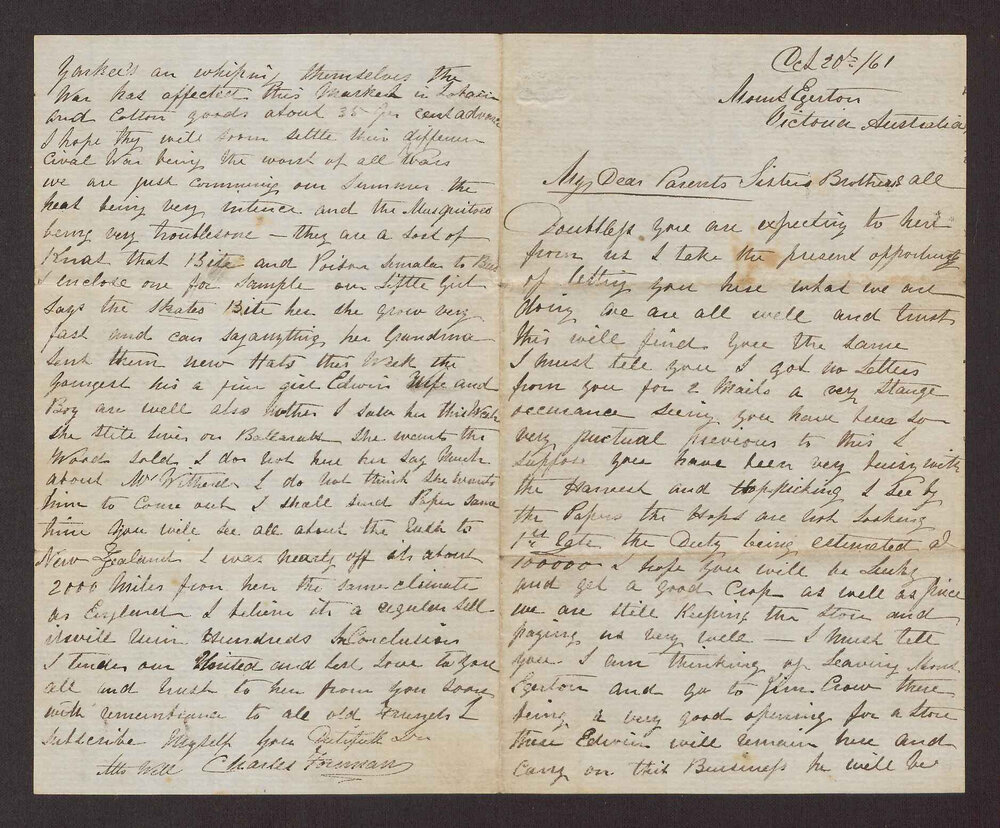 Oct 20th /61
Mount Egerton
Victoria Australia
My Dear Parents Sisters Brothers & all
Doubtless you are expecting to here
from us I take the present opportunity
of letting you here what we are
doing we are all well and trust
this will find you the same
I must tell you I got no Letters
from you for 2 Mails a very Stange
occurance seeing you have been so
very puctual previous to this I
suppose you have been very buisy with
the Harvest and Hoppicking I see by
the Papers the Hops are not looking
1st Rate the Duty being estimated at
100000 I hope you will be Lucky
and get a good Crop as well as Price
we are still Keeping the Store and
paying us very well - I must tell
you I am thinking of Leaving Mount
Egerton and go to Jim Crow there
being a very good opening for a Store
there Edwin will remain here and
carry on this Buisness he will be
Yankees are whiping themselves the
War has affected this Market in Tobacco
and Cotton goods about 35 per cent advance
I hope they will soon settle their differen
Cival War being the worst of all Wars
we are just comming our Summer the
heat being very intence and the Musquitoes
being very troublesome - they are a sort of
Knat that Bite and Poison simalar to Bees
I enclose one for sample our Little Girl
says the skates Bite her she grow very
fast and can say anything her Grandma
sent them new Hats this Week the
youngest his a fine girl Edwins Wife and
Boy are well also Mother I saw her this Week
she still lives on Ballaratt she wants the
Wood sold I do not here her say much
about Mr I do not think she wants
him to come out I shall send Paper same
time you will see all about the Rush to
New Zealand I was nearly off its about
2000 Miles from here the same climate
as England I believe its a regular Sell
it will ruin Hundreds In Conclusion
I tender our United and best Love to you
all and trust to here from you soon
with rememberance to all old Freinds I
subscribe Myself your Dutifull Son
Charles Foreman